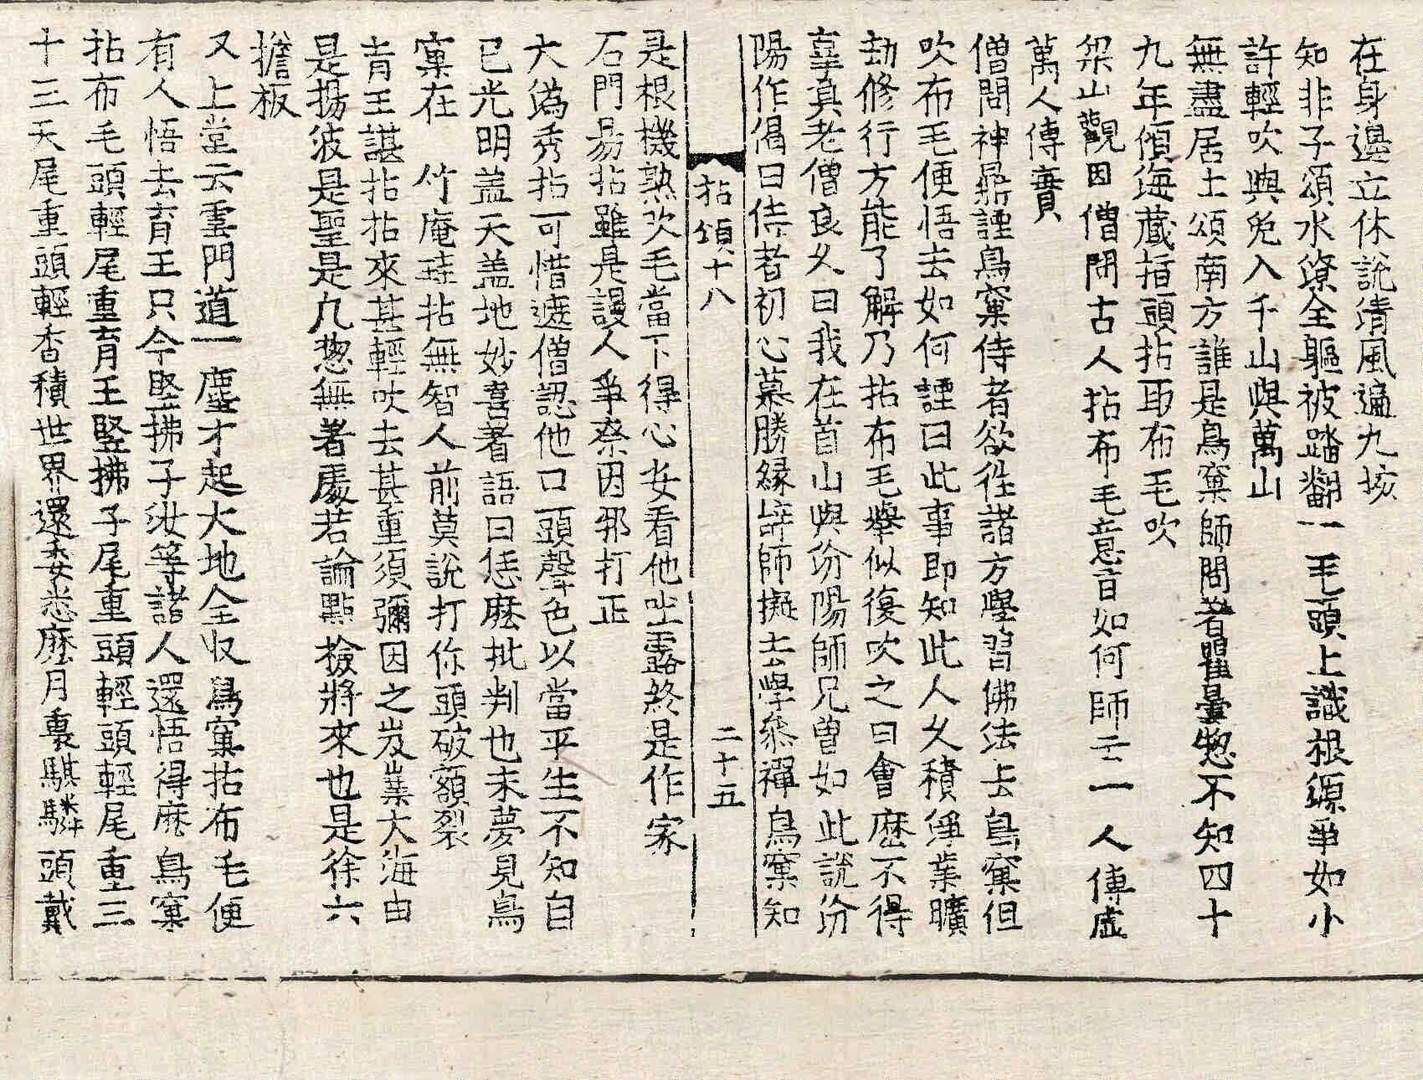 在身邊立休說清風遍九垓
知非子頌水潦全軀被踏翻一毛頭上識根源爭如小
許輕吹與免入千山與萬山
無盡居士頌南方誰是鳥窠師問着瞿曇惣不知四十
九年傾海藏指頭拈取布毛吹
梁山觀因僧問古人拈布毛意旨如何師云一人傳虛
萬人傳實
僧問神鼎諲鳥窠侍者欲往諸方學習佛法去鳥窠但
吹布毛便悟去如何諲曰此事即知此人久積淨業曠
劫修行方能了解乃拈布毛擧似復吹之曰會麽不得
辜負老僧良久曰我在首山與汾陽師兄曾如此說汾
陽作偈曰侍者初心慕勝緣辞師擬去學叅禪鳥窠知
拈頌十八
二十五
是根機熟吹毛當下得心安看他吐露終是作家
石門易拈雖是謾人爭奈因邪打正
大潙秀拈可惜遮僧認他口頭聲色以當平生不知自
已光明盖天盖地妙喜著語曰恁麽批判也未夢見鳥
窠在 竹庵珪拈無智人前莫說打你頭破額裂
育王諶拈拈來甚輕吹去甚重須彌因之岌嶪大海由
是揚波是聖是凡惣無著處若論點撿將來也是徐六
擔板
又上堂云雲門道一塵才起大地全收鳥窠拈布毛便
有人悟去育王只今竪拂子汝等諸人還悟得麽鳥窠
拈布毛頭輕尾重育王竪拂子尾重頭輕頭輕尾重三
十三天尾重頭輕香積世界還委悉麽月裏騏驎頭戴